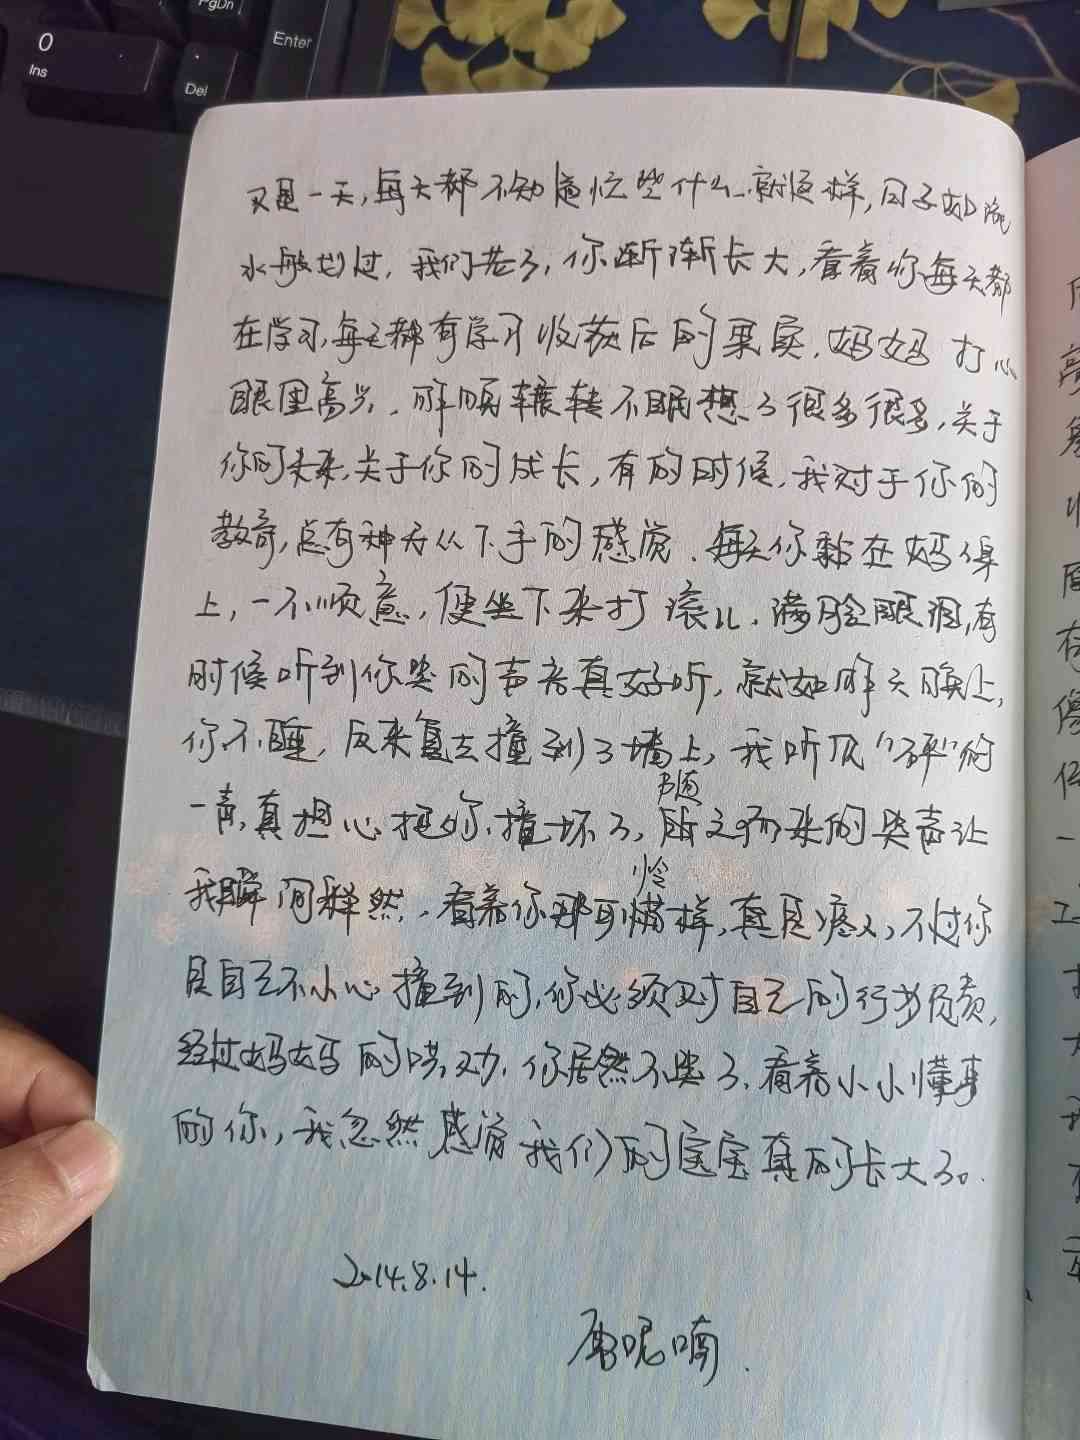 0
Ins
PgDn
Enter
Del
又是一天,每天都不知道忙些什么,就这样,日子如流
水般划过,我们老了,你渐渐长大,看着你每天都
在学习,每天都有学习收获后的果实,妈妈打心
眼里高兴,昨晚辗转不眠想了很多很多,关于
你的未来,关于你的成长,有的时候,我对于你的
教育,总有种无从下手的感觉,每天你黏在妈身
上,一不顺意,便坐下来打滚儿,满脸眼泪,有
时候听到你哭的声音真好听,就如昨天晚上,
你不睡,反来复去撞到了墙上,我听见“砰”的
一声,真担心把你撞坏了,随之而来的哭声让
我瞬间释然,看着你那可怜样,真是疼人,不过你
是自己不小心撞到的,你必须对自己的行为负责,
经过妈妈的哄劝,你居然不哭了,看着小小懂事
的你,我忽然感觉我们的宝宝真的长大了。
2014.8.14.
呢喃.